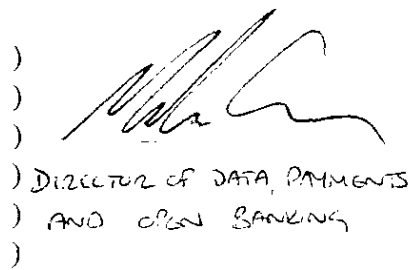 )
)
)
) DIRECTOR OF DATA, PAYMENTS
) AND OPEN BANKING
)